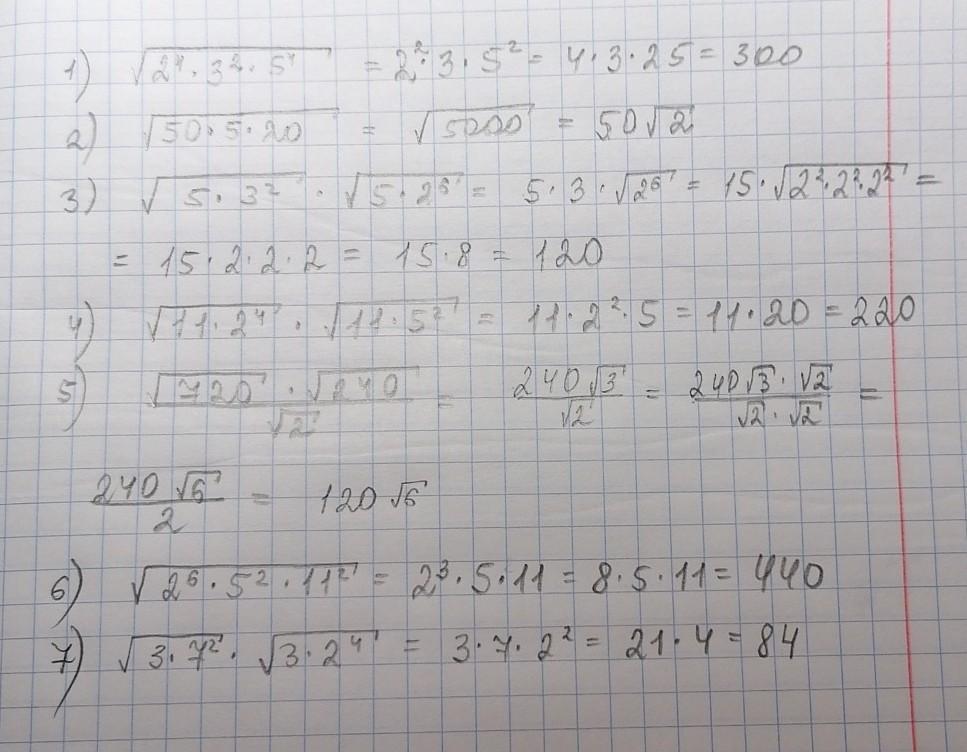 1) √(2⁴·3²·5⁴) = 2²·3·5² = 4·3·25 = 300
2) √(50·5·20) = √5000 = 50√2
3) √(5·3²) · √(5·2⁶) = 5·3·√2⁶ = 15·√(2²·2²·2²) =
= 15·2·2·2 = 15·8 = 120
4) √(11·2⁴) · √(11·5²) = 11·2²·5 = 11·20 = 220
5) (√720 · √240)/√2 = 240√3/√2 = (240√3·√2)/(√2·√2) =
240√6/2 = 120√6
6) √(2⁶·5²·11²) = 2³·5·11 = 8·5·11 = 440
7) √(3·7²) · √(3·2⁴) = 3·7·2² = 21·4 = 84